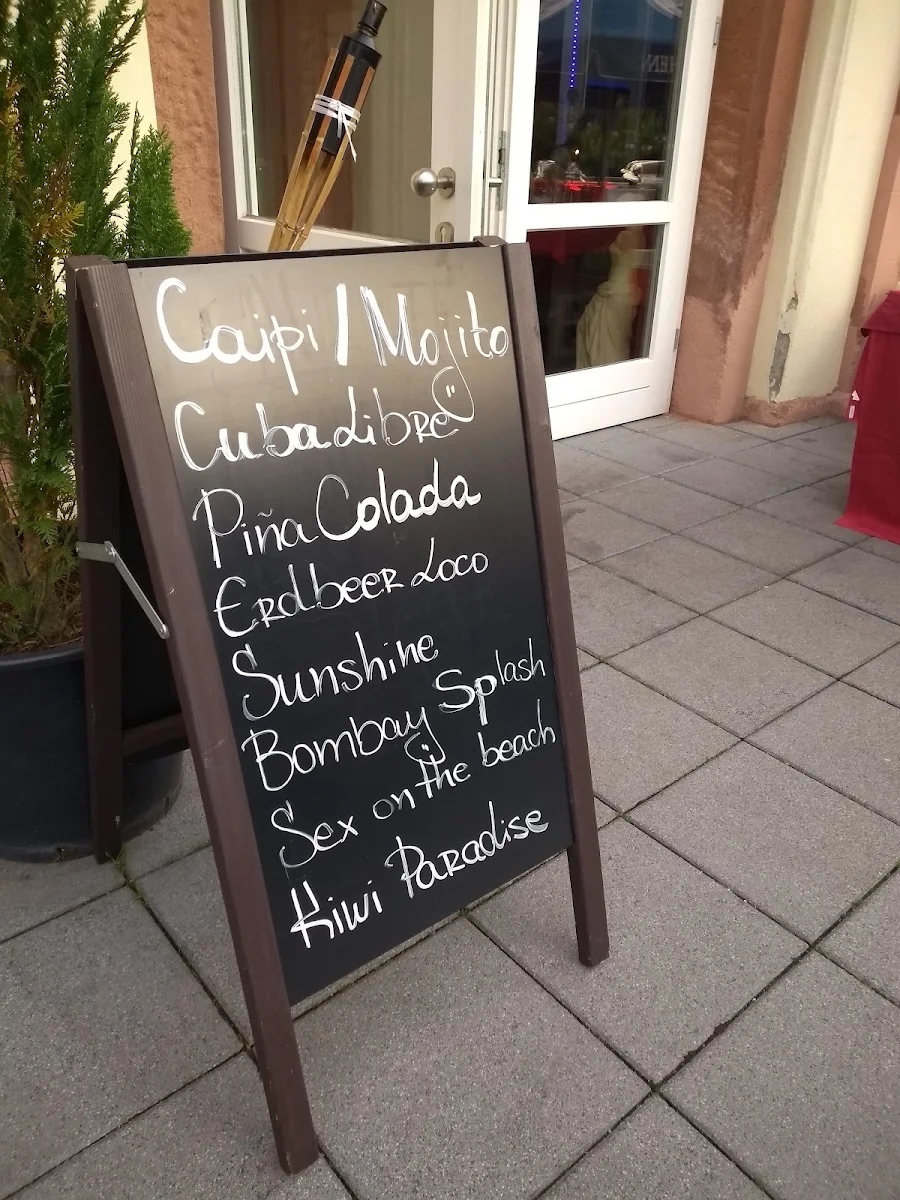 Caipi / Mojito
Cuba Libre
Piña Colada
Erdbeer Loco
Sunshine
Bombay Splash
Sex on the beach
Kiwi Paradise